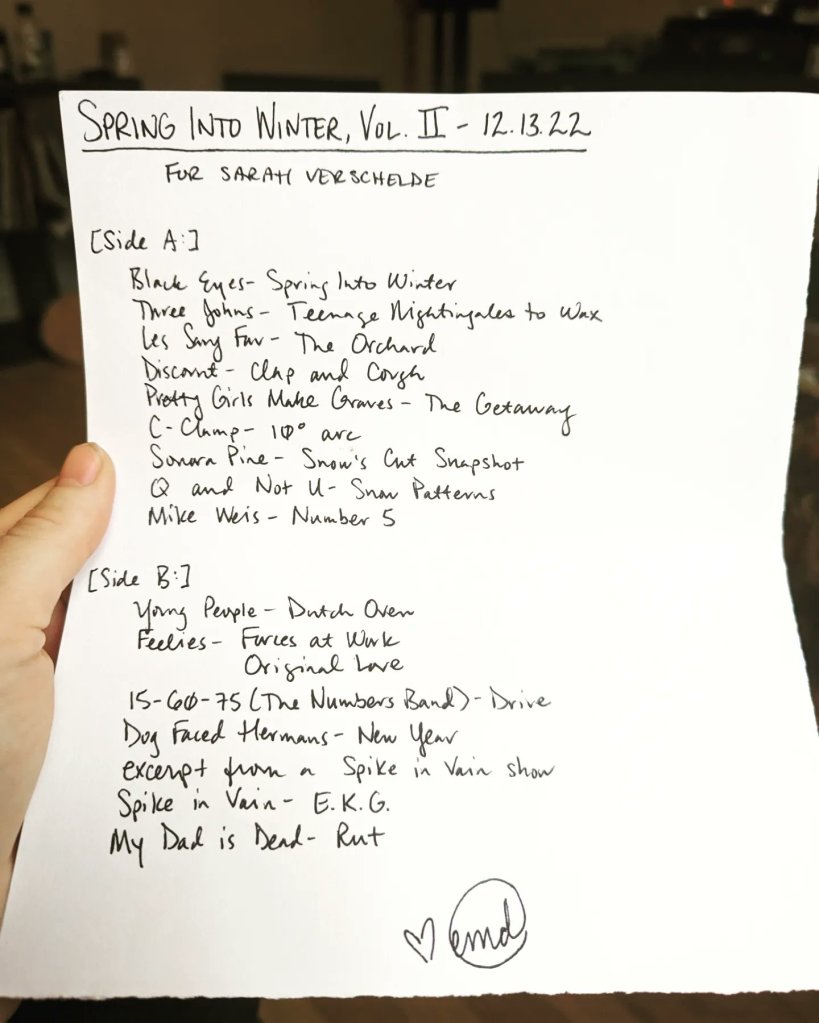 SPRING INTO WINTER, VOL. II - 12.13.22
FOR SARAH VERSCHELDE
[Side A:]
Black Eyes - Spring Into Winter
Three Johns - Teenage Nightingales to Wax
Les Savy Fav - The Orchard
Discount - Clap and Cough
Pretty Girls Make Graves - The Getaway
C-Clamp - 10° arc
Sonora Pine - Snow's Cut Snapshot
Q and Not U - Snow Patterns
Mike Weis - Number 5
[Side B:]
Young People - Dutch Oven
Feelies - Forces at Work
Original Love
15-60-75 (The Numbers Band) - Drive
Dog Faced Hermans - New Year
excerpt from a Spike in Vain show
Spike in Vain - E.K.G.
My Dad is Dead - Rut
♡ emd